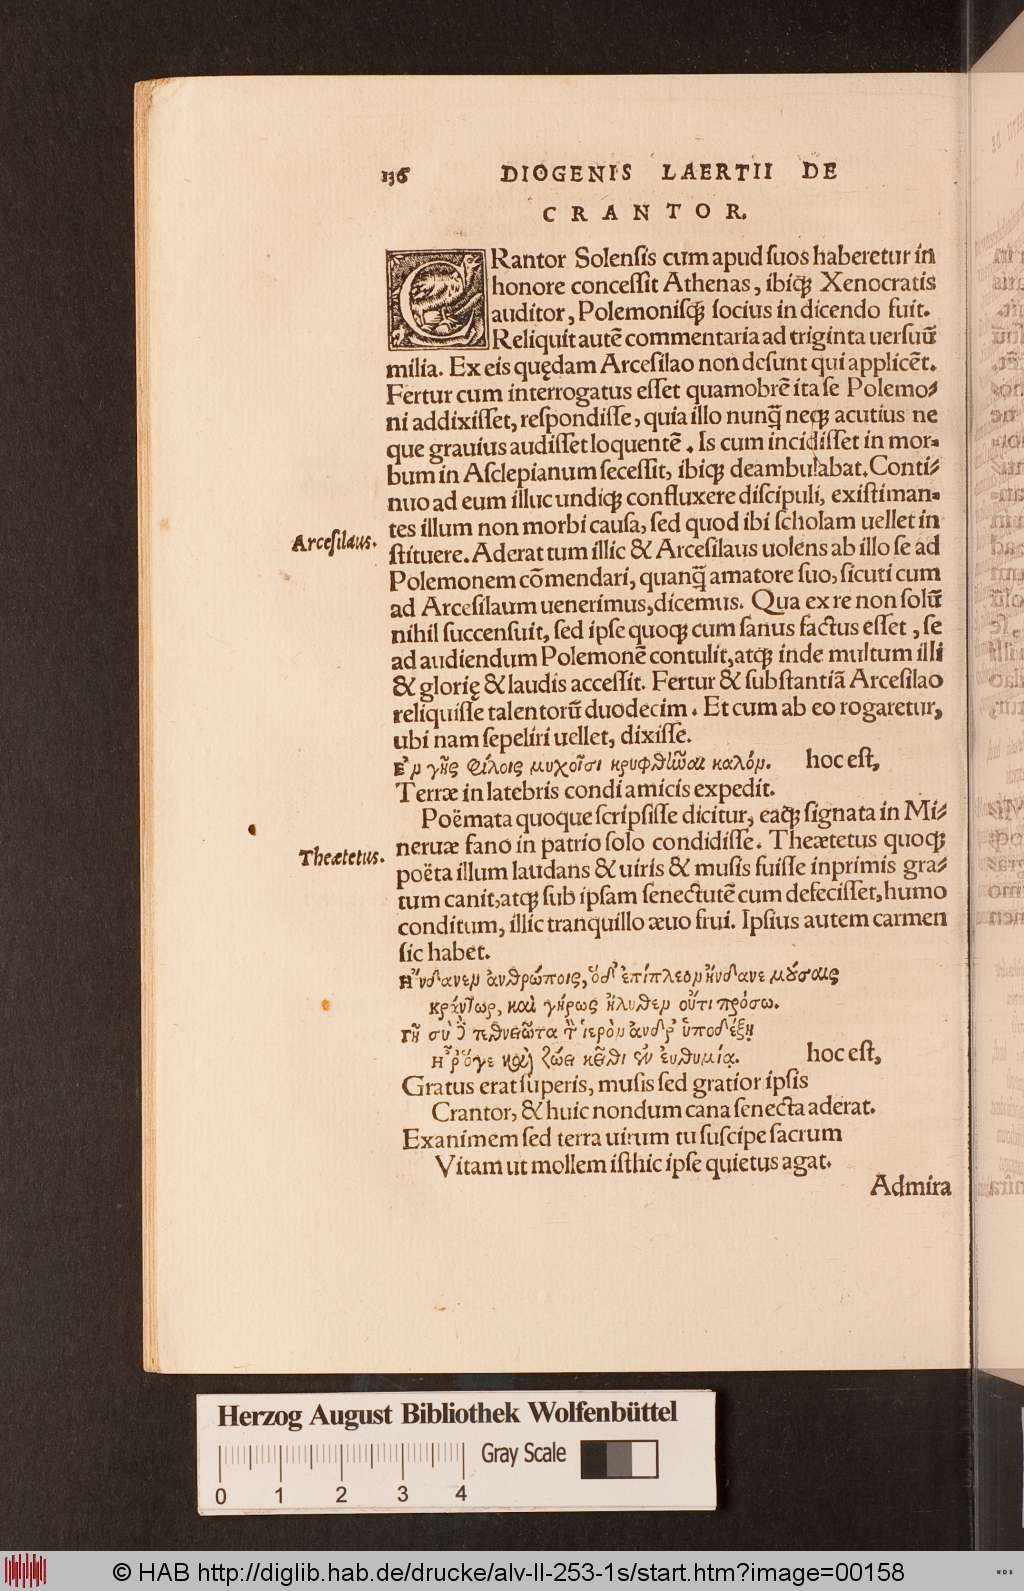 136 DIOGENIS LAERTII DE
CRANTOR.
CRantor Solensis cum apud suos haberetur in
honore concessit Athenas, ibiq; Xenocratis
auditor, Polemonisq; socius in dicendo fuit.
Reliquit autē commentaria ad triginta uersuū
milia. Ex eis quędam Arcesilao non desunt qui applicēt.
Fertur cum interrogatus esset quamobrē ita se Polemo⸗
ni addixisset, respondisse, quia illo nunq̃ neq; acutius ne
que grauius audisset loquentē. Is cum incidisset in mor⸗
bum in Asclepianum secessit, ibiq; deambulabat. Conti⸗
nuo ad eum illuc undiq; confluxere discipuli, existiman⸗
tes illum non morbi causa, sed quod ibi scholam uellet in
Arcesilaus.
stituere. Aderat tum illic & Arcesilaus uolens ab illo se ad
Polemonem cōmendari, quanq̃ amatore suo, sicuti cum
ad Arcesilaum uenerimus, dicemus. Qua ex re non solū
nihil succensuit, sed ipse quoq; cum sanus factus esset, se
ad audiendum Polemonē contulit, atq; inde multum illi
& glorię & laudis accessit. Fertur & substantiā Arcesilao
reliquisse talentorū duodecim. Et cum ab eo rogaretur,
ubi nam sepeliri uellet, dixisse.
Ἐν γῆς φίλοις μυχοῖσι κρυφθῆναι καλόν. hoc est,
Terræ in latebris condi amicis expedit.
Poëmata quoque scripsisse dicitur, eaq; signata in Mi⸗
neruæ fano in patrio solo condidisse. Theætetus quoq;
Theætetus.
poëta illum laudans & uiris & musis fuisse inprimis gra⸗
tum canit, atq; sub ipsam senectutē cum defecisset, humo
conditum, illic tranquillo æuo frui. Ipsius autem carmen
sic habet.
Ἥνδανεν ἀνθρώποις, ὅδ' ἐπίπλεον ἥνδανε μούσαις
κράντωρ, καὶ γήρως ἤλυθεν οὔτι πρόσω.
Γῆ σὺ δὲ τεθνεῶτα τὸν ἱερὸν ἄνδρ' ὑποδέξῃ
Ἦ ῥ' ὅγε καὶ ζώει κεῖθι ἐν εὐθυμίᾳ. hoc est,
Gratus erat superis, musis sed gratior ipsis
Crantor, & huic nondum cana senecta aderat.
Exanimem sed terra uirum tu suscipe sacrum
Vitam ut mollem isthic ipse quietus agat.
Admira
Herzog August Bibliothek Wolfenbüttel
Gray Scale
0 1 2 3 4
© HAB http://diglib.hab.de/drucke/alv-ll-253-1s/start.htm?image=00158